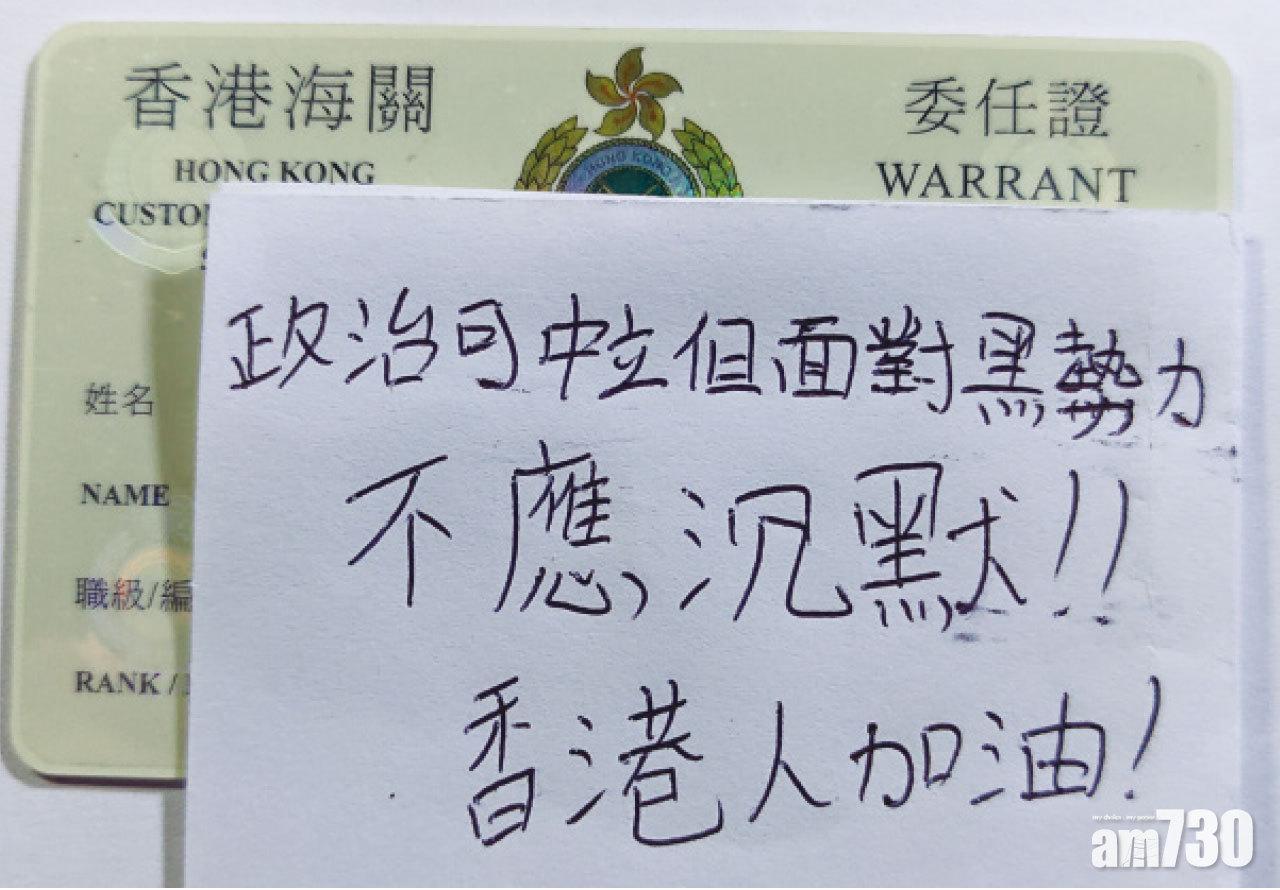 香港海關
委任證
HONG KONG
WARRANT
HONG KONG
姓名
NAME
職級/編
RANK /
政治可中立但面對黑勢力
不應沉默!!
香港人加油!
my choice . my paper
am730